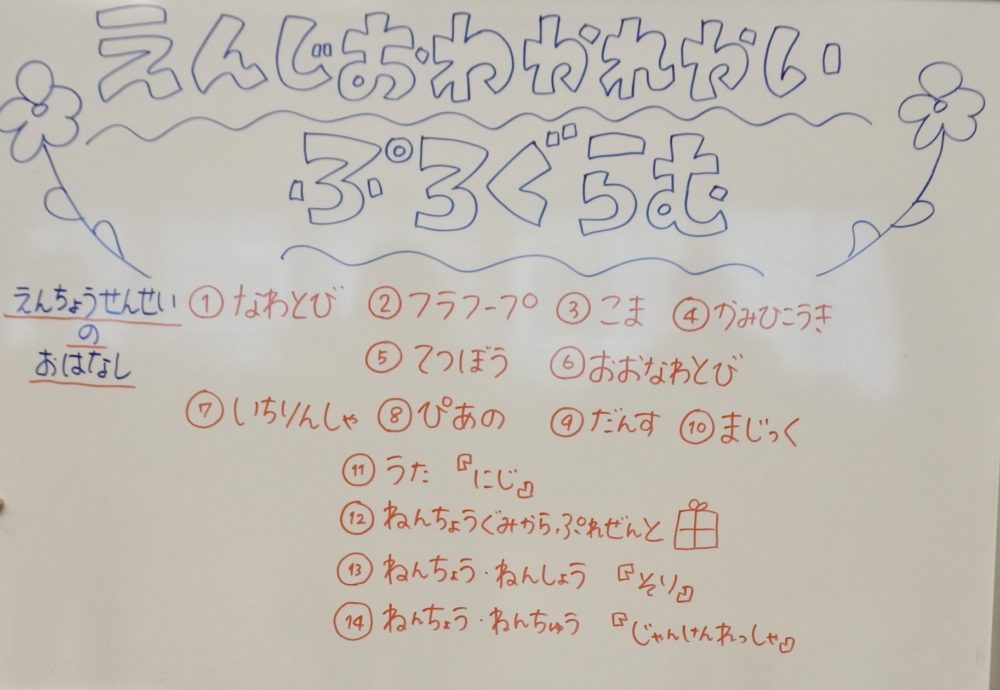 えんじおわかれかい
ぷろぐらむ
えんちょうせんせい
の
おはなし
① なわとび ② フラフープ ③ こま ④ かみひこうき
⑤ てつぼう ⑥ おおなわとび
⑦ いちりんしゃ ⑧ ぴあの ⑨ だんす ⑩ まじっく
⑪ うた 『にじ』
⑫ ねんちょうぐみから、ぷれぜんと
⑬ ねんちょう・ねんしょう 『そり』
⑭ ねんちょう・ねんちゅう 『じゃんけんれっしゃ』